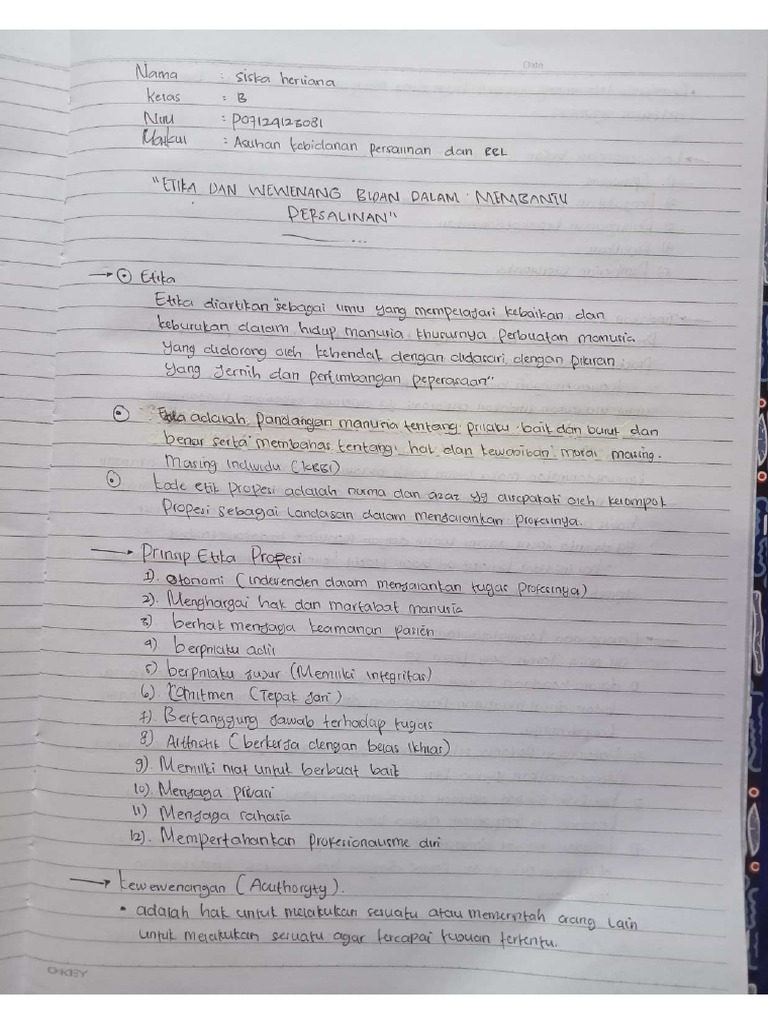 Date
Nama : Siska herliana
Kelas : B
NIM : P07124123081
Matkul : Asuhan kebidanan persalinan dan BBL
"ETIKA DAN WEWENANG BIDAN DALAM MEMBANTU
PERSALINAN"
→ Etika
Etika diartikan "sebagai ilmu yang mempelajari kebaikan dan
keburukan dalam hidup manusia khususnya perbuatan manusia
yang didorong oleh kehendak dengan didasari dengan pikiran
yang jernih dan pertimbangan peperasaan"
Etika adalah pandangan manusia tentang prilaku baik dan buruk dan
benar serta membahas tentang hak dan kewajiban moral masing-
masing individu (KBBI)
kode etik Propesi adalah norma dan azaz yg disepakati oleh kelompok
Propesi sebagai landasan dalam menjalankan profesinya.
→ Prinsip Etika Propesi
1). otonomi (Independen dalam menjalankan tugas profesinya)
2). Menghargai hak dan martabat manusia
3) berhak menjaga keamanan pasien
4) berprilaku adil
5) berprilaku jujur (Memiliki integritas)
6) Komitmen (Tepak Jari)
7). Bertanggung jawab terhadap tugas
8) (berkerja dengan belas ikhlas)
9) Memiliki niat untuk berbuat baik
10) Menjaga privasi
11) Menjaga rahasia
12). Mempertahankan profesionalisme diri
→ kewewenangan (Aouthoryty).
• adalah hak untuk melakukan sesuatu atau memerintah orang lain
untuk melakukan sesuatu agar tercapai tujuan tertentu.
OKEY